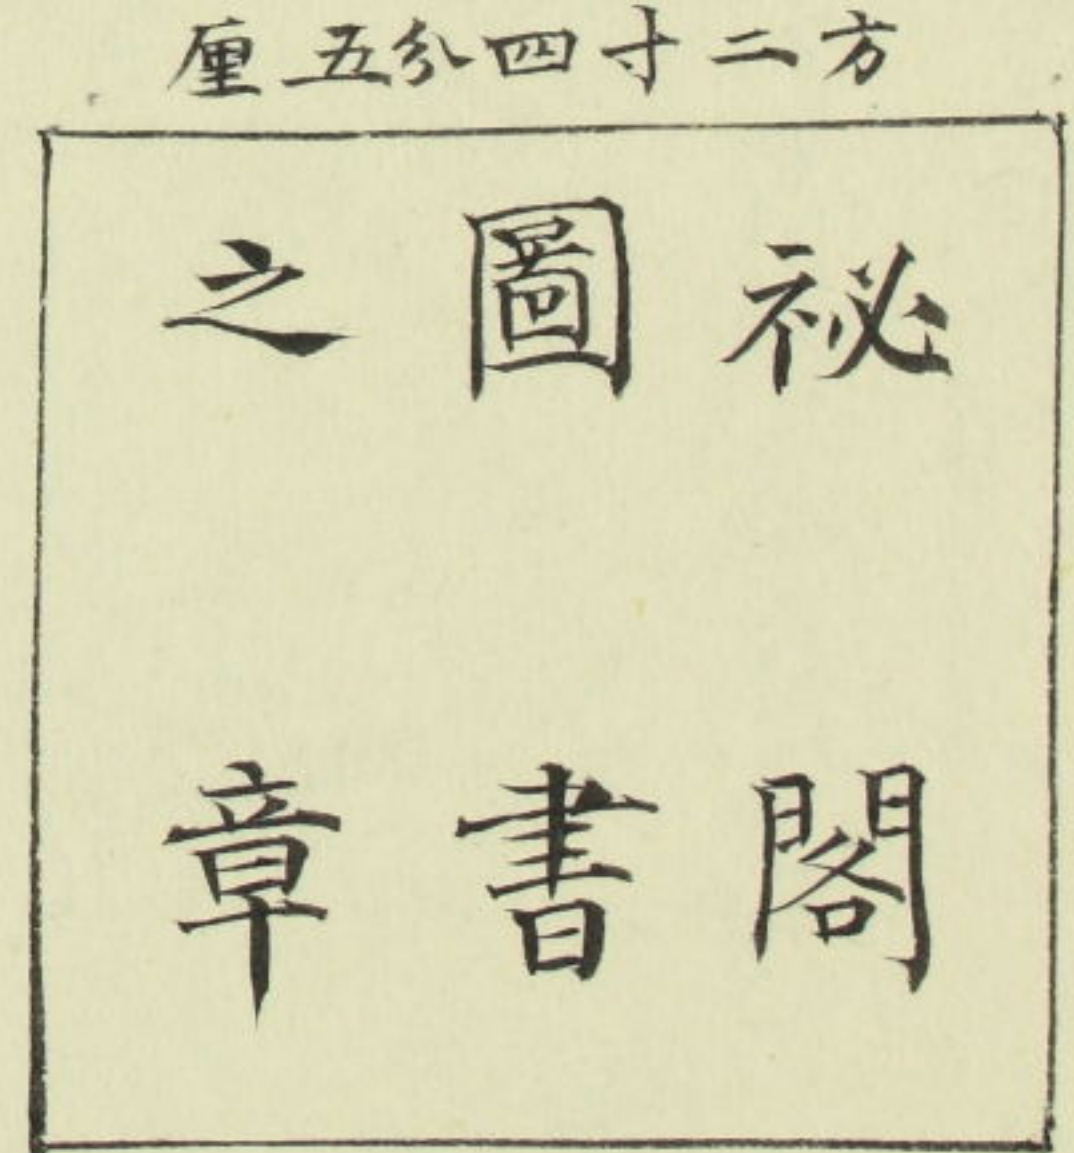 方二寸四分五厘
祕閣
圖書
之章